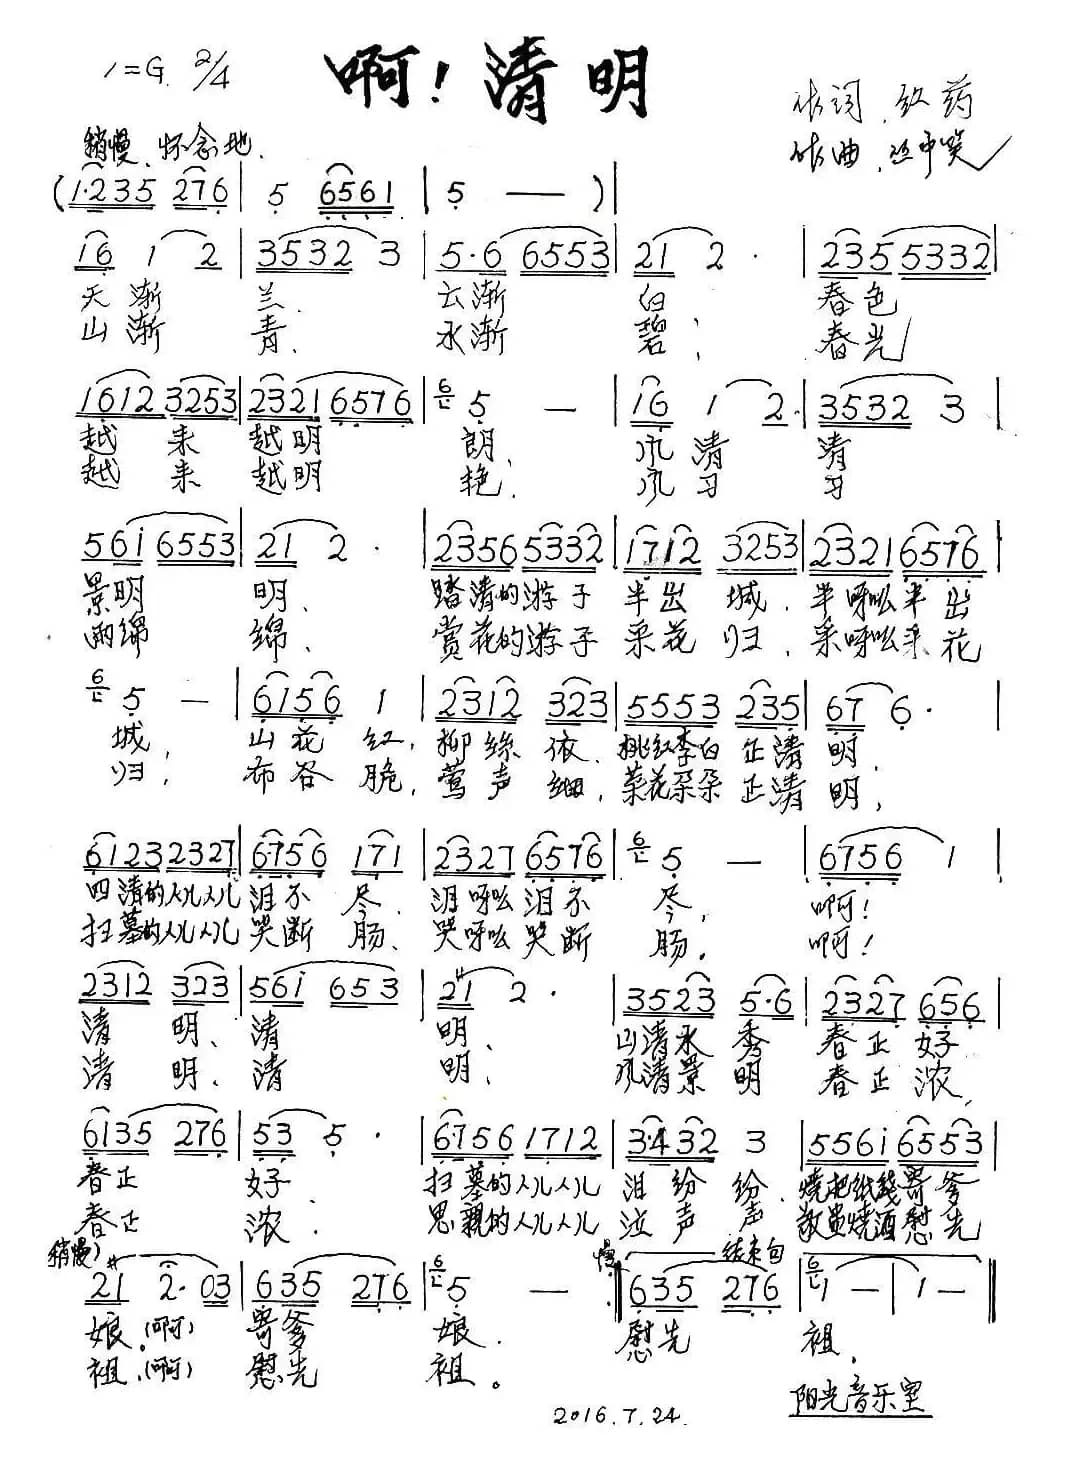 1=G 2/4
啊！清明
作词 红药
作曲
稍慢、怀念地.
(1·235 276 | 5 6561 | 5 — )
16 1 2 | 3532 3 | 5·6 6553 | 21 2 · | 235 5332
天渐 兰. 云渐 白 春色
山渐 青、 水渐 碧； 春光
1612 3253 | 2321 6576 | 5 — | 16 1 2 | 3532 3
越来 越明 朗， 风清 清
越来 越明 艳. 风习 习
561 6553 | 21 2 · | 2356 5332 | 1712 3253 | 2321 6576
景明 明、 踏清的游子 半出 城. 半呀么半出
雨绵 绵、 赏花的游子 采花 归，采呀么采花
5 — | 6156 1 | 2312 323 | 5553 235 | 67 6·
城， 山花 红，柳丝 依、桃红李白 正清 明.
归， 布谷 脆，莺声 细，菜花朵朵 正清 明，
6123 2327 | 6756 171 | 2327 6576 | 5 — | 6756 1
四清的人儿人儿 泪不 尽. 泪呀么泪不 尽， 啊！
扫墓的人儿人儿 哭断 肠、 哭呀么哭断 肠。 啊！
2312 323 | 561 653 | 21 2 · | 3523 5·6 | 2327 656
清 明、清 明、 山清水 秀 春正 好
清 明、清 明、 风清景 明 春正 浓，
6135 276 | 53 5 · | 6·756 1712 | 3·432 3 | 5561 6553
春正 好. 扫墓的人儿人儿 泪纷 纷. 烧把纸钱寄爹
春正 浓. 思亲的人儿人儿 泣声 声 敬盅烧酒慰先
稍慢) 慢 结束句
21 2·03 | 635 276 | 5 — | 635 276 | 1 — | 1 —
娘。(啊) 寄爹 娘. 慰先 祖.
祖、(啊) 慰先 祖。
阳光音乐室
2016.7.24.